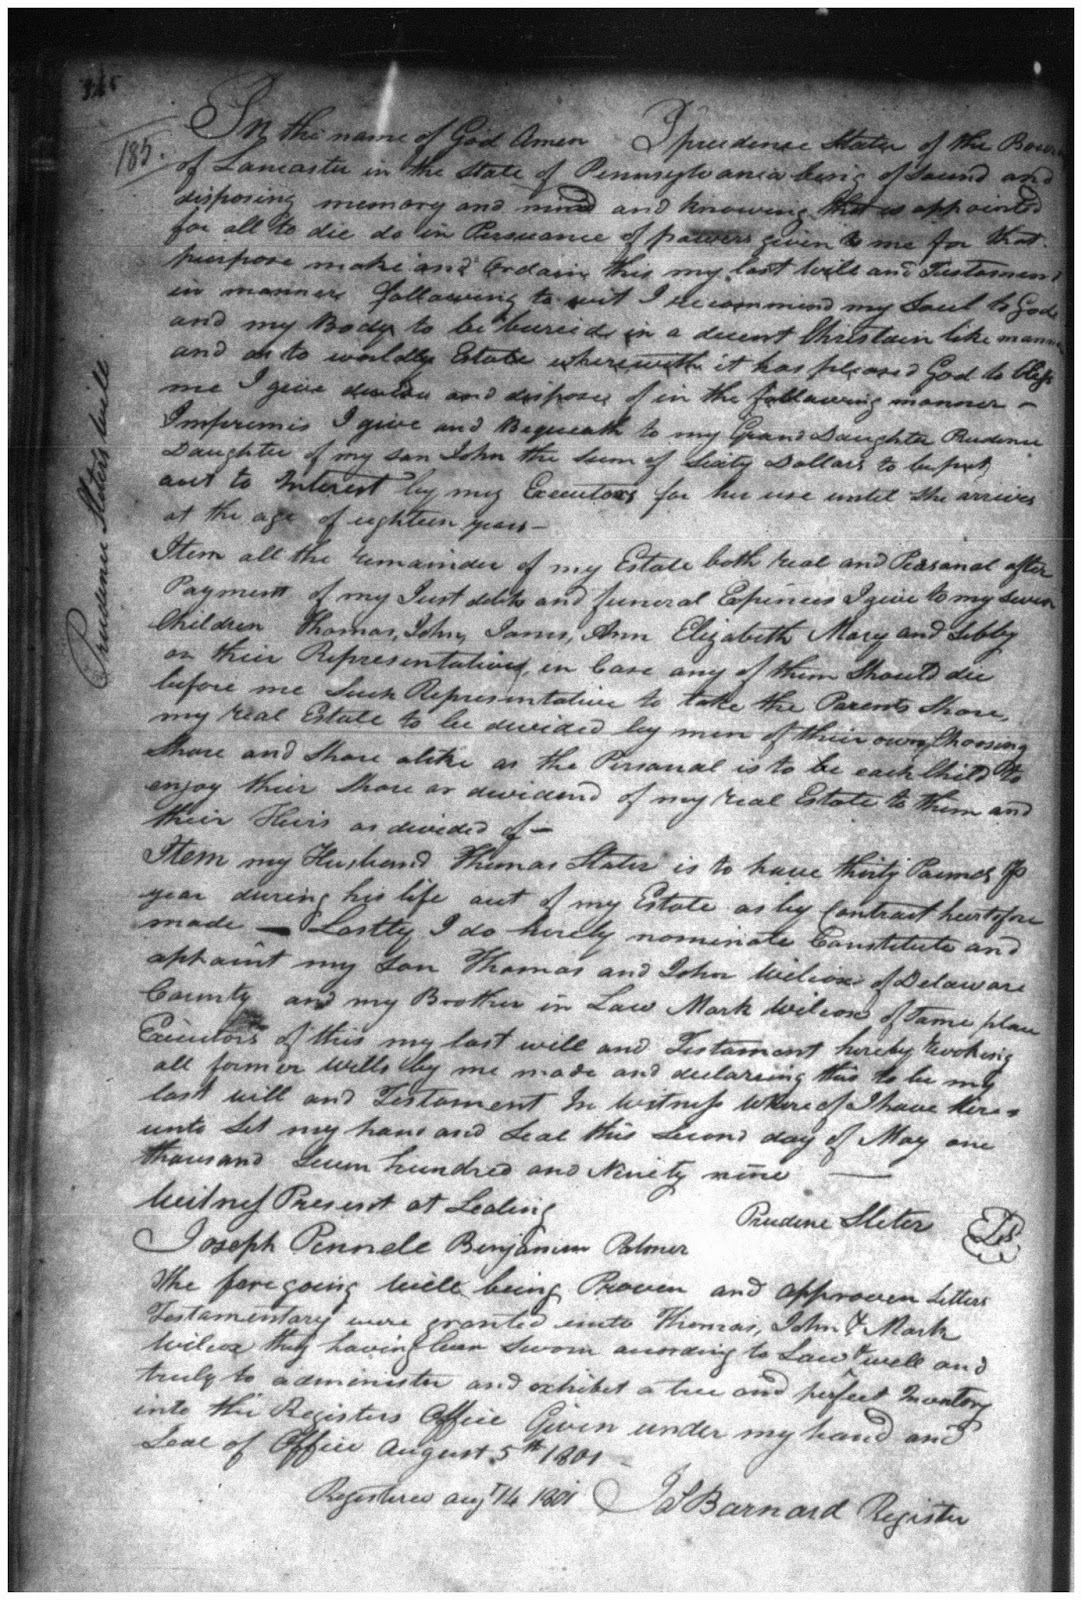 185.
Prudence Sleters will
In the name of God Amen I prudence Slater of the Borou
of Lancaster in the State of Pennsylvania being of Sound and
disposing memory and mind and knowing that is appointed
for all to die do in Persuance of powers given to me for that
purpose make and Ordain this my last will and Testament
in manner following to wit I recommend my Soul to God
and my Body to be buried in a decent Christain like manner
and as to worldly Estate wherewith it has pleased God to bless
me I give devise and dispose of in the following manner –
Impremis I give and Bequeath to my Grand Daughter Prudence
Daughter of my son John the Sum of Sixty Dollars to be put
out to Interest by my Executors for her use until She arrives
at the age of eighteen years –
Item all the remainder of my Estate both real and Personal after
Payment of my Just debts and funeral Expences I give to my seven
Children Thomas, John, James, Ann Elizabeth Mary and Libby
or their Representatives, in Case any of them Should die
before me Such Representative to take the Parents Share,
my real Estate to be devided by men of their own Choosing
Share and Share alike as the Personal is to be each Child to
enjoy their Share or dividend of my real Estate to them and
their Heirs as divided of –
Item my Husband Thomas Slater is to have thirty Pounds p
year during his life out of my Estate as by Contract heartofore
made – Lastly I do hereby nominate Constitute and
appoint my Son Thomas and John Wilcox of Delaware
County and my Brother in Law Mark Wilcox of Same place
Executors of this my last will and Testament hereby revoking
all former Wills by me made and declareing this to be my
last will and Testament In Witness Whereof I have here =
unto Set my hand and Seal this Second day of May one
thousand Seven hundred and Ninety nine —
Witness Present at Sealing
Prudence Sleter LS
Joseph Pennele Benjamin Palmer
The foregoing Will being Proven and approven Letters
Testamentary were granted unto Thomas, John & Mark
Wilcox they having been Sworn according to Law well and
truly to administer and exhibit a true and perfect Inventory
into the Registers Office Given under my hand and
Seal of Office August 5th 1801 –
Registered augt 14 1801 Jas Barnard Register